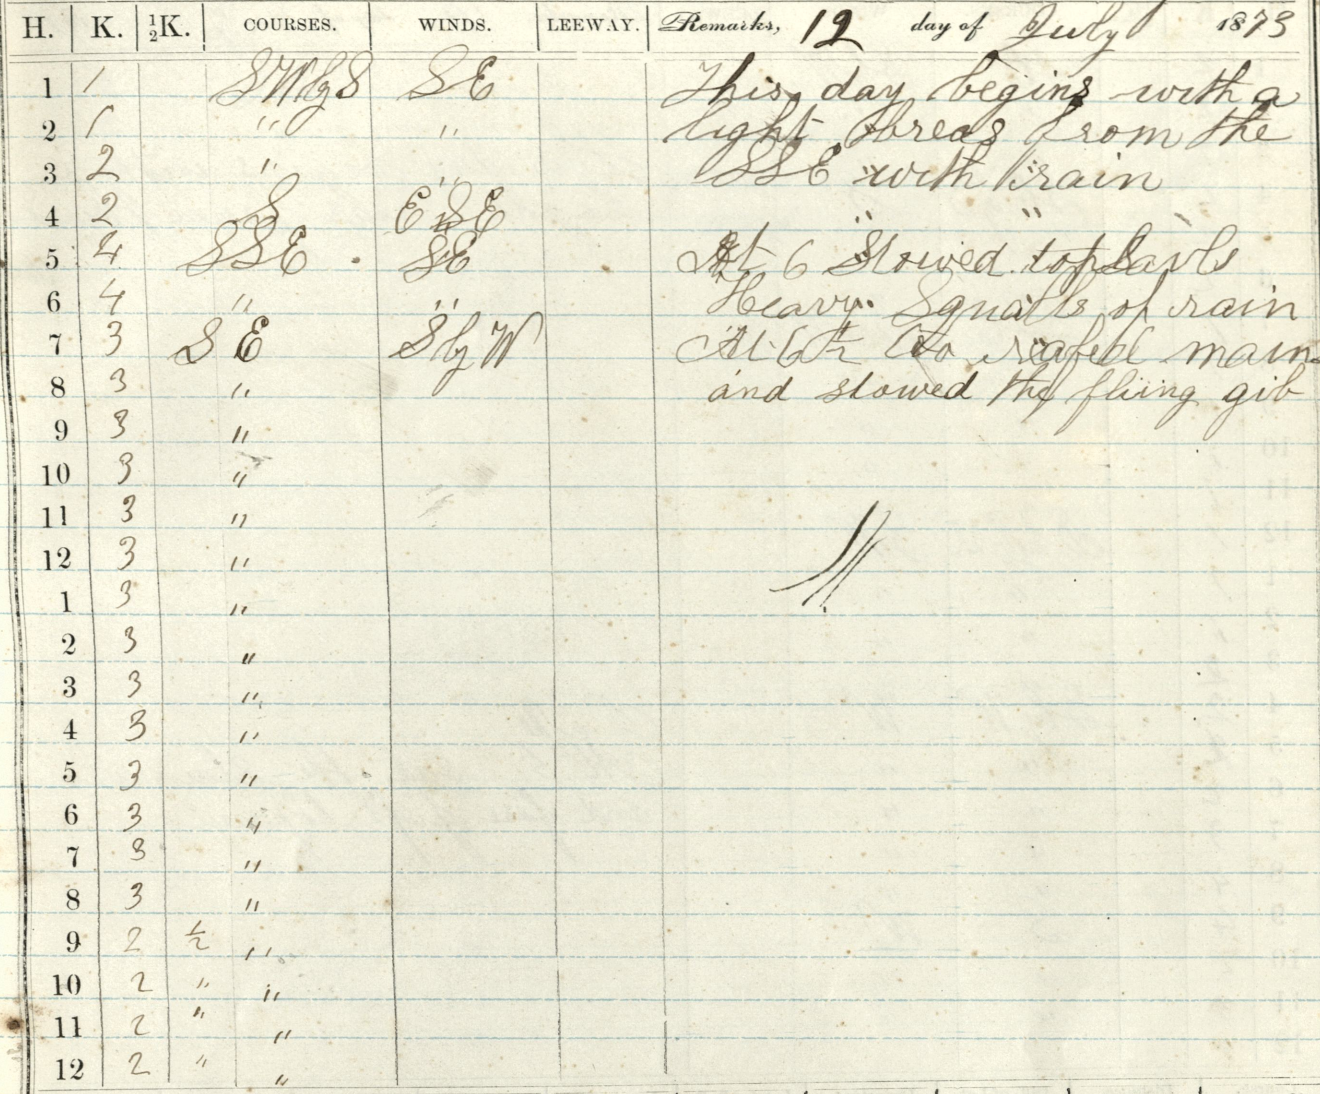 H. K. ½K. COURSES. WINDS. LEEWAY. Remarks, 12 day of July 1873
1 1 SWbyS SE This day begins with a
2 1 " " light breas from the
3 2 " " SSE with rain
4 2 S ESE " "
5 4 SSE SE At 6 Stowed topsavls
6 4 " " Heavy Squalls of rain
7 3 SE SbyW At 6½ reafed main
8 3 " and stowed the fliing gib
9 3 "
10 3 "
11 3 "
12 3 "
1 3 "
2 3 "
3 3 "
4 3 "
5 3 "
6 3 "
7 3 "
8 3 "
9 2 ½ "
10 2 " "
11 2 " "
12 2 " "